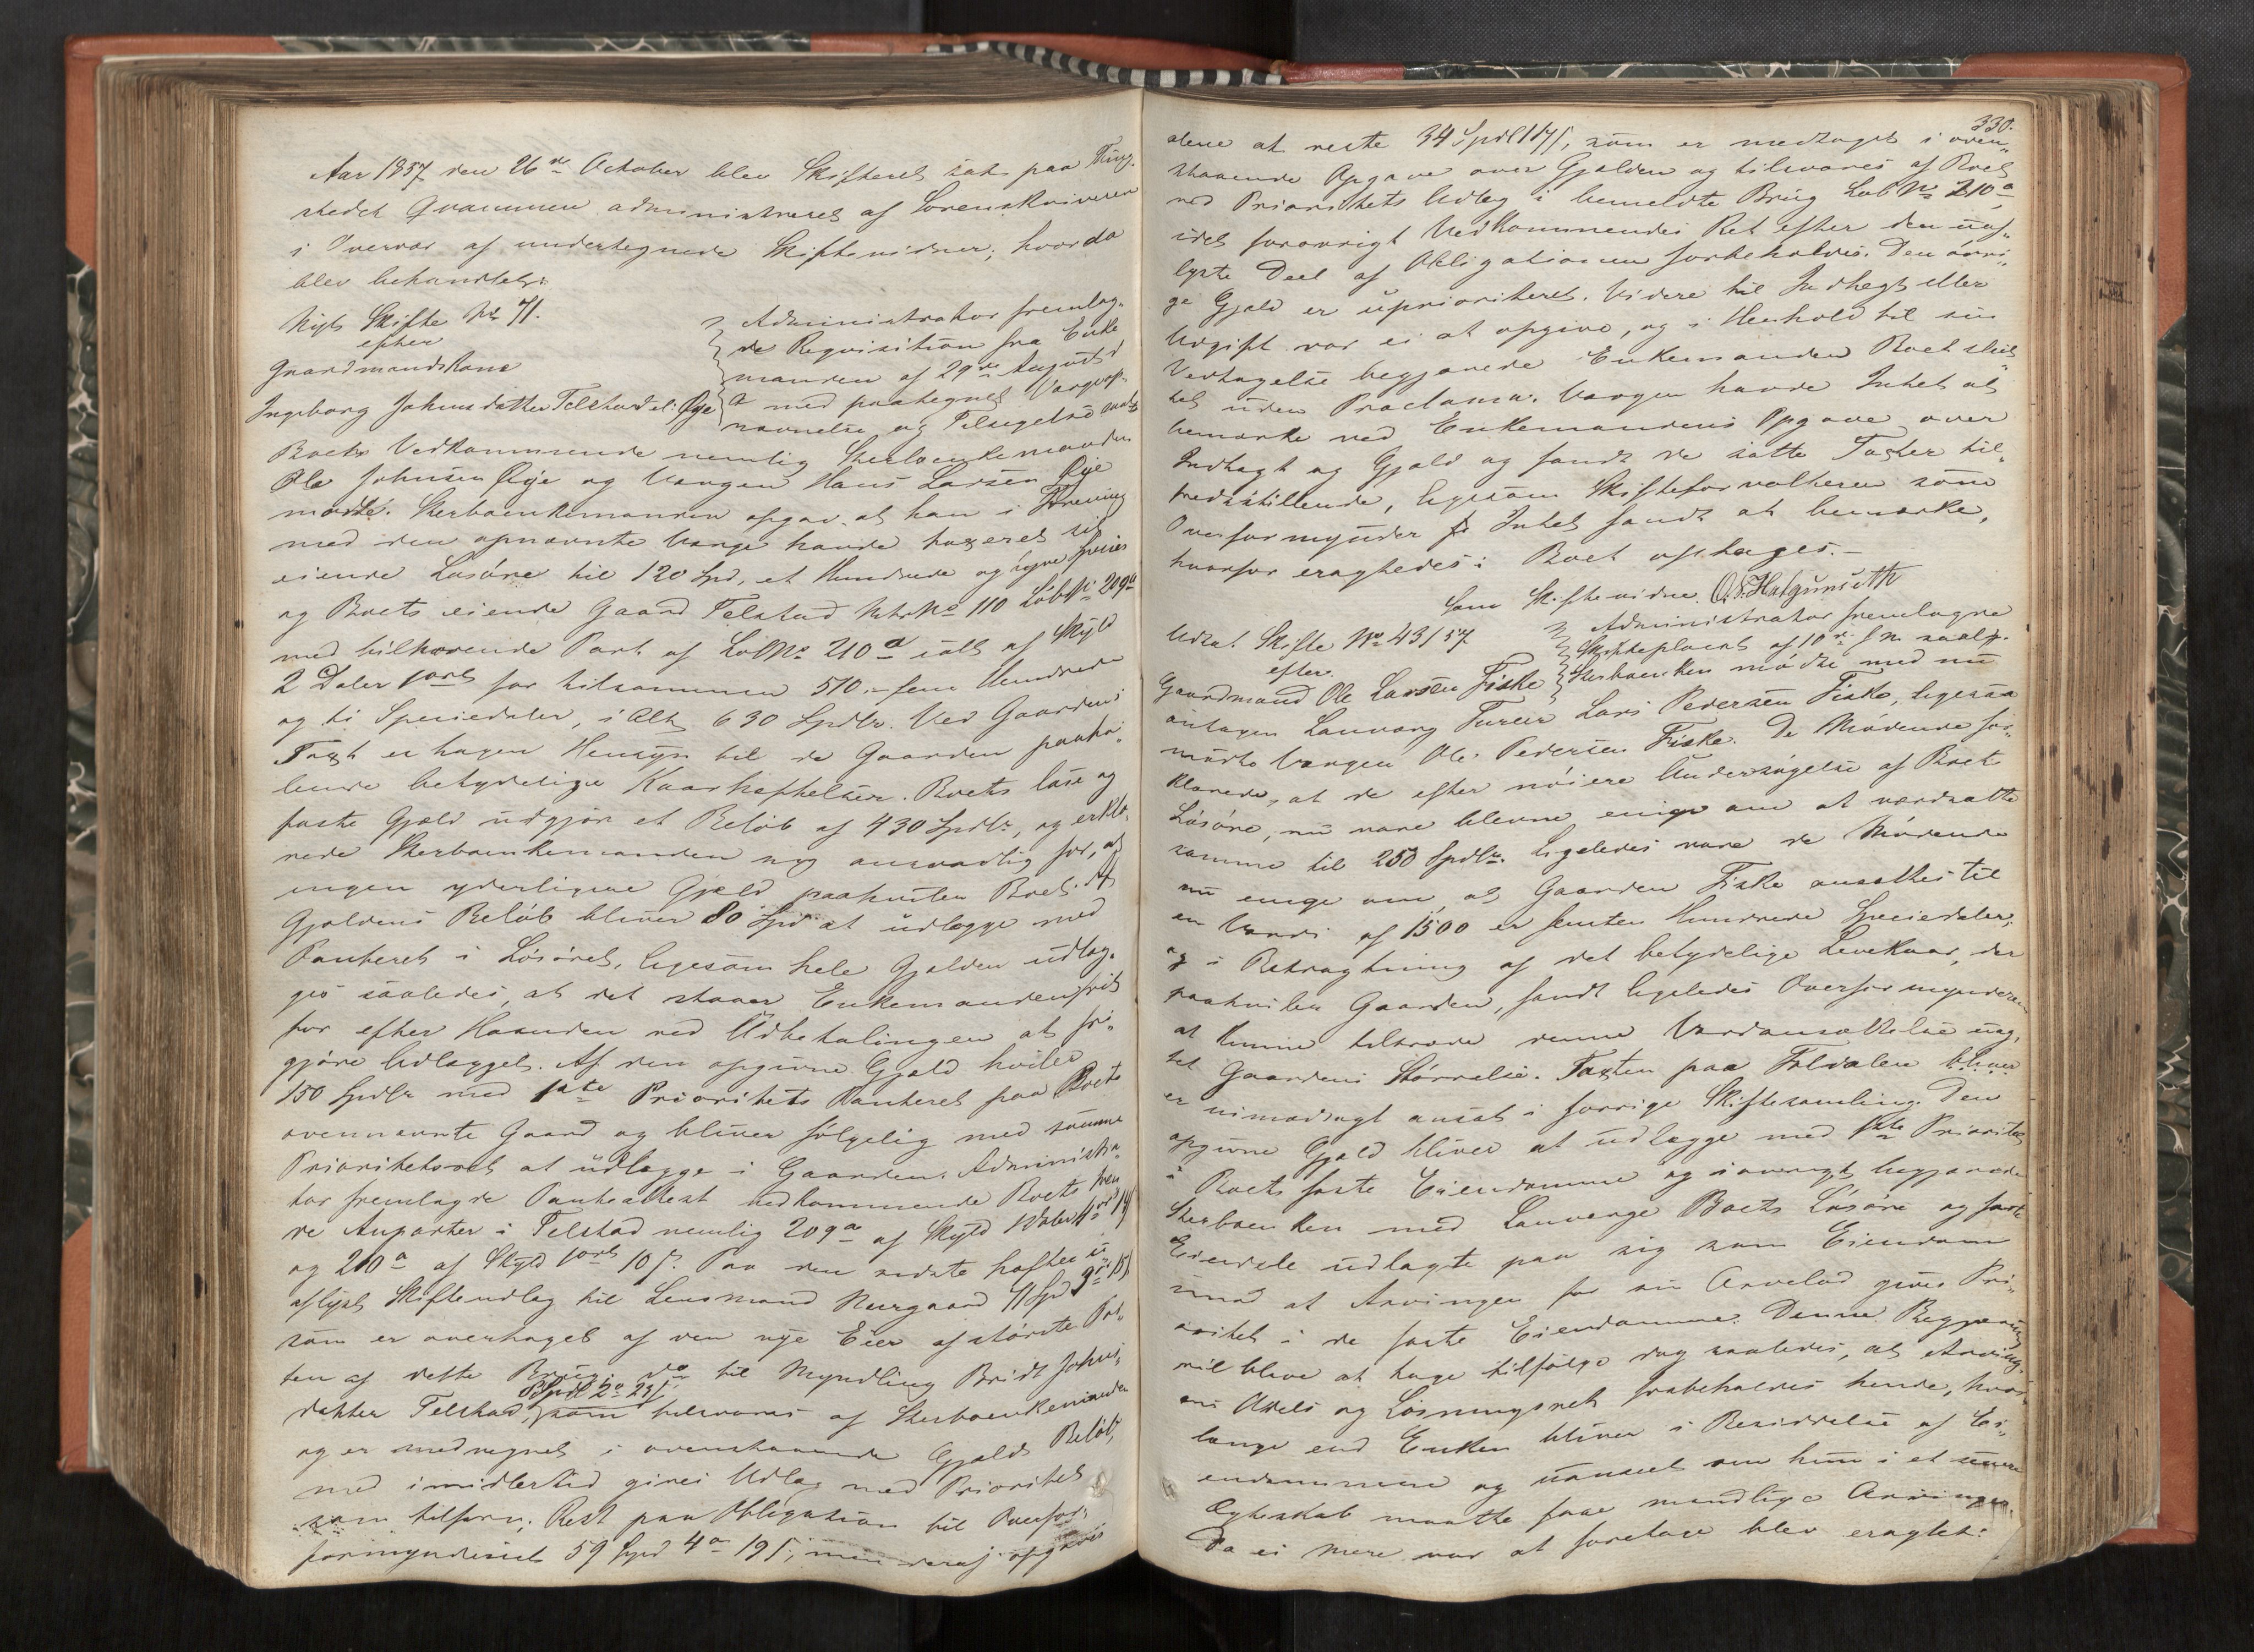 Aar 1857 den 26de October blev Skifteret sat paa Ting-
stedet Qvammen administreret af Sorenskriveren
i Overvær af undertegnede Skiftevidner; hvor da
blev behandlet:
Nyt Skifte No 71.
efter
Gaardmandskone
Ingeborg Johnsdatter Telstad el: Øye
Administrator fremlag-
de Requisition fra Enke
manden af 29de August d
A med paategnet Vargeop-
nævnelse og Tilsigelse
Boets Vedkommende nemlig Sterboenkemanden
Ole Johnsen Øye og Vergen Hans Larsen Øye
mødte. Sterboenkemanden opgav at han i Forening
med den opnævnte Værge havde taxeret sit
eiende Løsøre til 120 Spd, et Hundrede og tyve Species
og Boets eiende Gaard Telstad Mtr No 110 Løb No 209a
med tilhørende Part af LøbNo 210a ialt af Skyld
2 Daler 1ort for tilsammen 510 - fem Hundrede
og ti Speciedaler, i Alt 630 Spdlr. Ved Gaardens
Taxt er tagen Hensyn til de Gaarden paahvi-
lende betydelige Kaarheftelser. Boets løse og
faste Gjæld udgjør et Beløb af 430 Spdlr, og erklæ-
rede Sterboenkemanden sig ansvarlig for, at
ingen yderligere Gjeld paahviler Boet. Af
Gjældens Beløb bliver 80 Spd at udlægge med
Panteret i Løsøret, ligesom hele Gjælden udlæg-
ges saaledes, at det staaer Enkemanden frit
for efter Haanden ved Udbetalingen at fri-
gjøre Udlægget. Af den opgivne Gjæld hviler
150 Spdlr med 1ste Prioritets Panteret paa Boets
ovennævnte Gaard og bliver følgelig med samme
Prioritetsret at udlægge i Gaarden. Administra-
tor fremlagde Panteattest vedkommende Boets
de Anparter i Telstad nemlig 209a af Skyld 1 Daler
og 210a af Skyld 1ort 10 s. Paa den sidste hæfter
aflyst Skifteudlæg til Lensmand Neergaard
som er overtaget af den nye Eier af største Par-
ten af dette Brug; do til Myndling Bridt Johns-
datter Telstad, 2o 23 s. som tilsvares af Sterboenkemanden
og er medregnet i ovenstaaende Gjælds Beløb,
med imidlertid gives Udlæg med Prioritet
som tilforn; Rest paa Obligation til Overfor-
formynderiet 59 Spd 4o 19 s; men deraf opgaves
330.
alene at reste 34 Spdl 1 s, som er medtaget i oven-
staaende Opgave over Gjælden og tilsvares af Boet
ved Prioritets Udlæg i bemeldte Brug Løb No 210a,
idet forøvrigt Vedkommendes Ret efter den uaf-
lyste Deel af Obligationen forbeholdes. Den øvri-
ge Gjæld er uprioriteret. Videre til Indtægt eller
Udgift var ei at opgive, og i Henhold til sin
Vedtagelse begjærede Enkemanden Boet slut-
tet uden Proclama. Værgen havde Intet at
bemærke ved Enkemandens Opgave over
Indtægt og Gjæld og fandt de satte Taxter til-
fredsstillende, ligesom Skifteforvalteren som
Overformynder Intet fandt at bemærke,
hvorfor eragtedes: Boet optages. -
Som Skiftevidne. O. S. Halgunseth
Udsat Skifte No 43/57
efter
Gaardmand Ole Larsen Fiske
Administrator fremlagde
Skifteplacat af 10de f. M.
Sterboenken mødte med nu
antagen Lauværg Lars Pedersen Fiske, ligesaa
mødte Værgen Ole Pedersen Fiske. De Mødende for-
klarede, at de efter nøiere Undersøgelse af Boets
Løsøre, nu vare blevne enige om at værdsætte
samme til 250 Spdlr. Ligeledes vare de Mødende
nu enige om, at Gaarden Fiske ansættes til
en Værdi af 1500 er femten Hundrede Speciedaler;
og i Betragtning af det betydelige Levekaar, der
paahviler Gaarden, fandt ligeledes Overformynderen
at kunne tiltræde denne Værdiansættelse uag-
tet Gaardens Størrelse. Taxten paa Foldalen bliver
er uimodsagt ansat i forrige Skiftesamling. Den
opgivne Gjæld bliver at udlægge med 1ste Prioritet
i Boets faste Eiendomme og iøvrigt begjærede
Sterboenken med Lauværge Boets Løsøre og faste
Eiendele udlagte paa sig som Eiendom
imod at Arvingen for sin Arvelod gives Pri-
oritet i de faste Eiendomme. Denne Begjæring
vil blive at tage tilfølge dog saaledes, at Arving-
ens Odels og Løsningsret forbeholdes hende, hvor-
længe end Enken bliver i Besiddelse af Ei-
endommene og uanseet om hun i et senere
Ægteskab maatte faae mandlige Arvinger.
Da ei mere var at foretage blev eragtet: